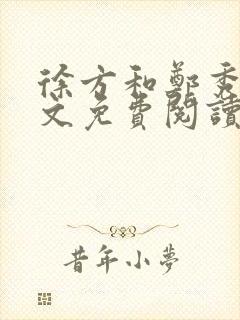 徐方和鄭秀
文免費閱讀
昔年小夢